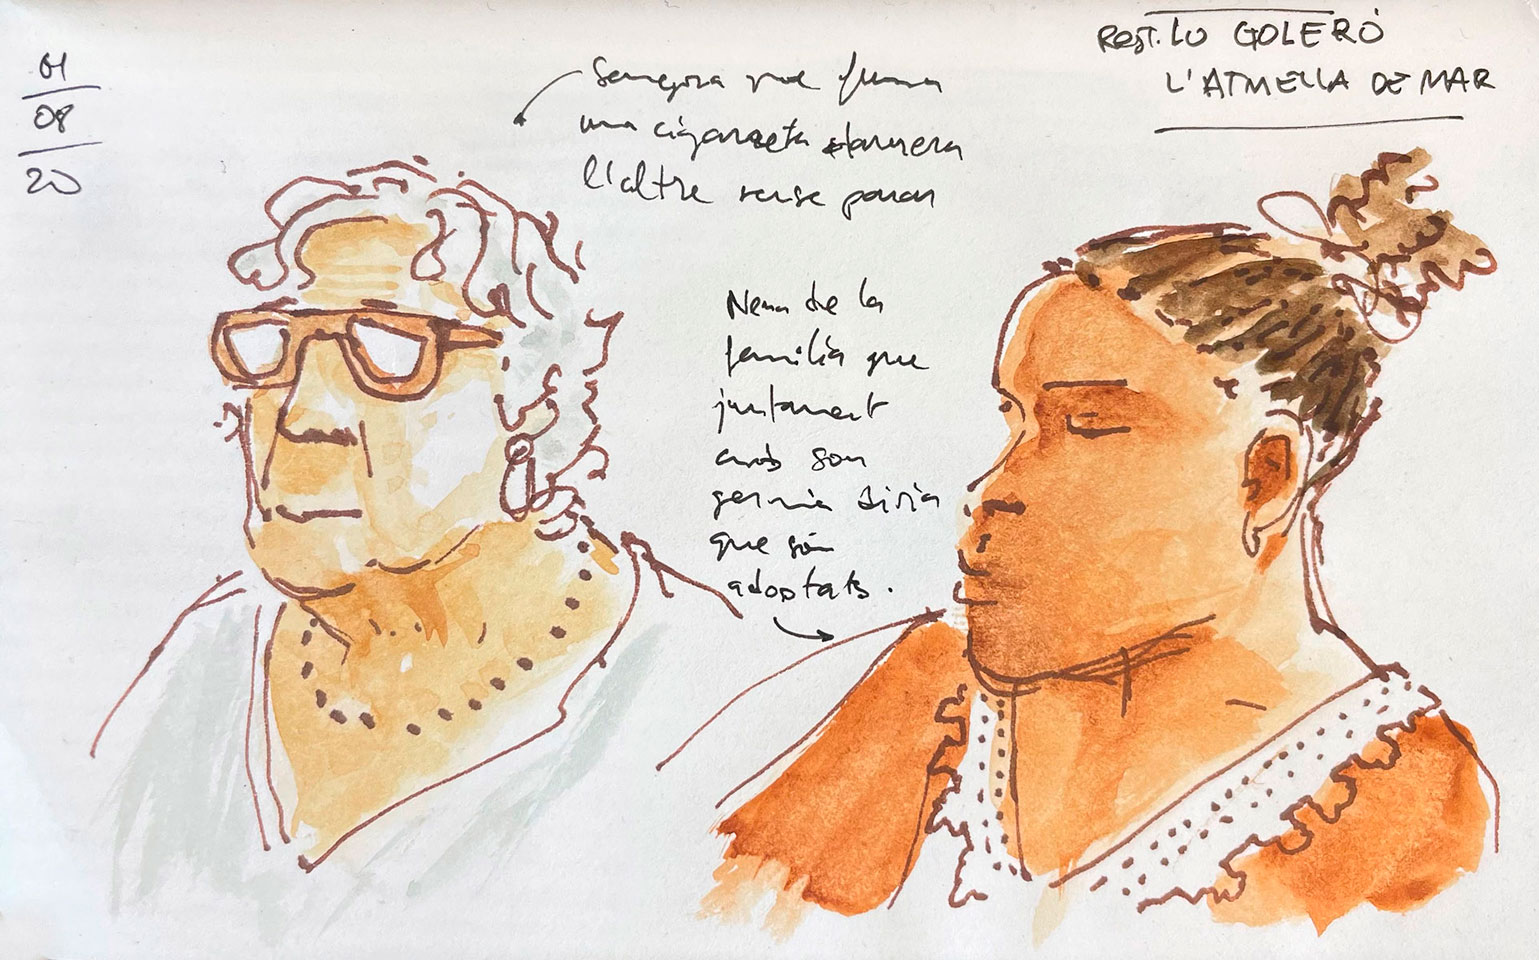 01
08
20
Rest. Lo GOLERÓ
L'ATMELLA DE MAR
Senyora que fuma
una cigarreta darrera
l'altre sense parar
Nena de la
família que
justament
amb son
germà diria
que són
adoptats.